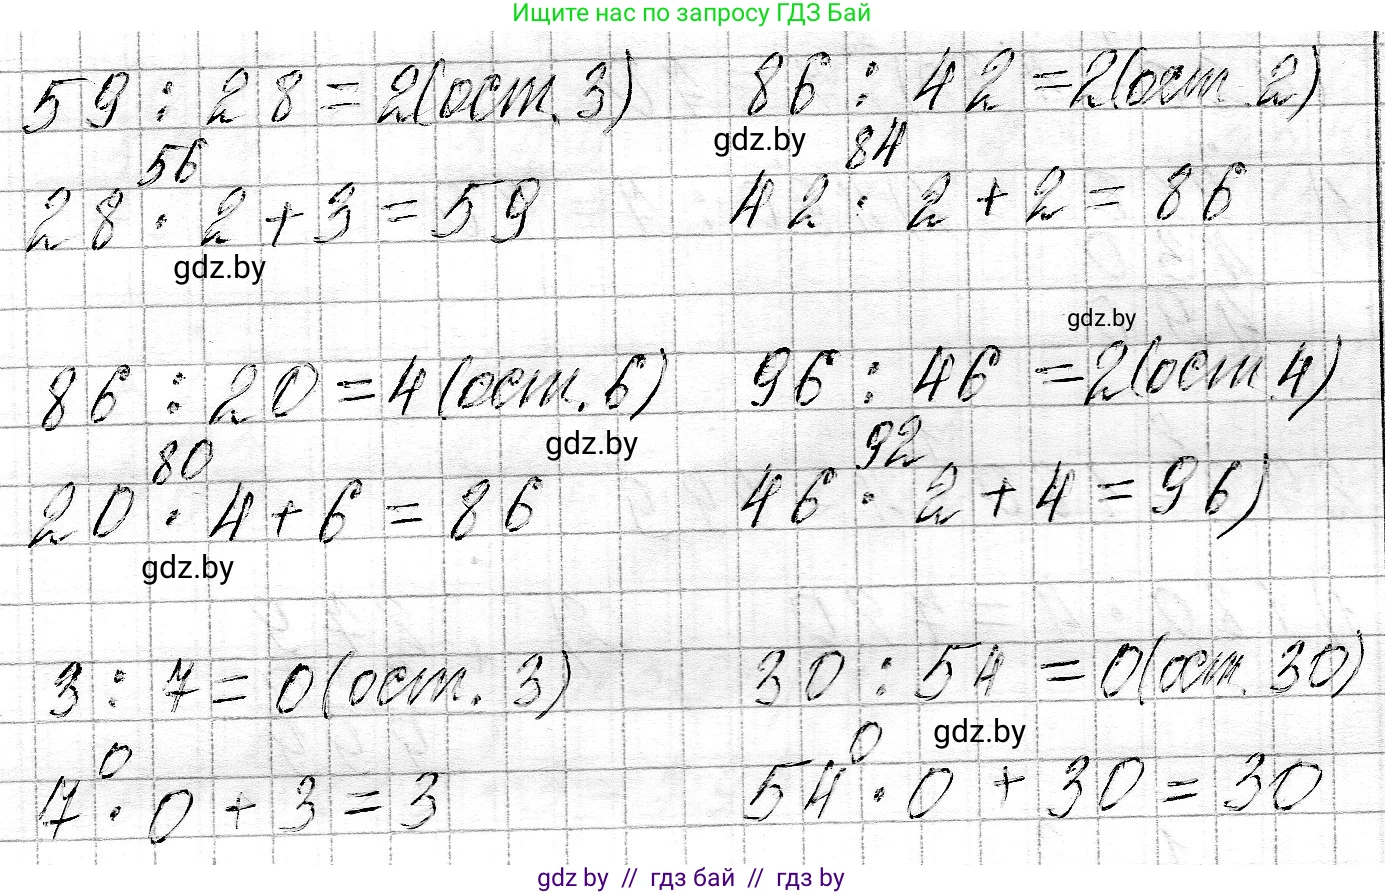 Ищите нас по запросу ГДЗ Бай
59 : 28 = 2(ост. 3)
86 : 42 = 2(ост. 2)
gdz.by
56
84
28 · 2 + 3 = 59
42 · 2 + 2 = 86
gdz.by
gdz.by
86 : 20 = 4 (ост. 6)
96 : 46 = 2(ост. 4)
gdz.by
80
92
20 · 4 + 6 = 86
46 · 2 + 4 = 96)
gdz.by
3 : 7 = 0(ост. 3)
30 : 54 = 0(ост. 30)
gdz.by
0
0
7 · 0 + 3 = 3
54 · 0 + 30 = 30
gdz.by // гдз бай // гдз by